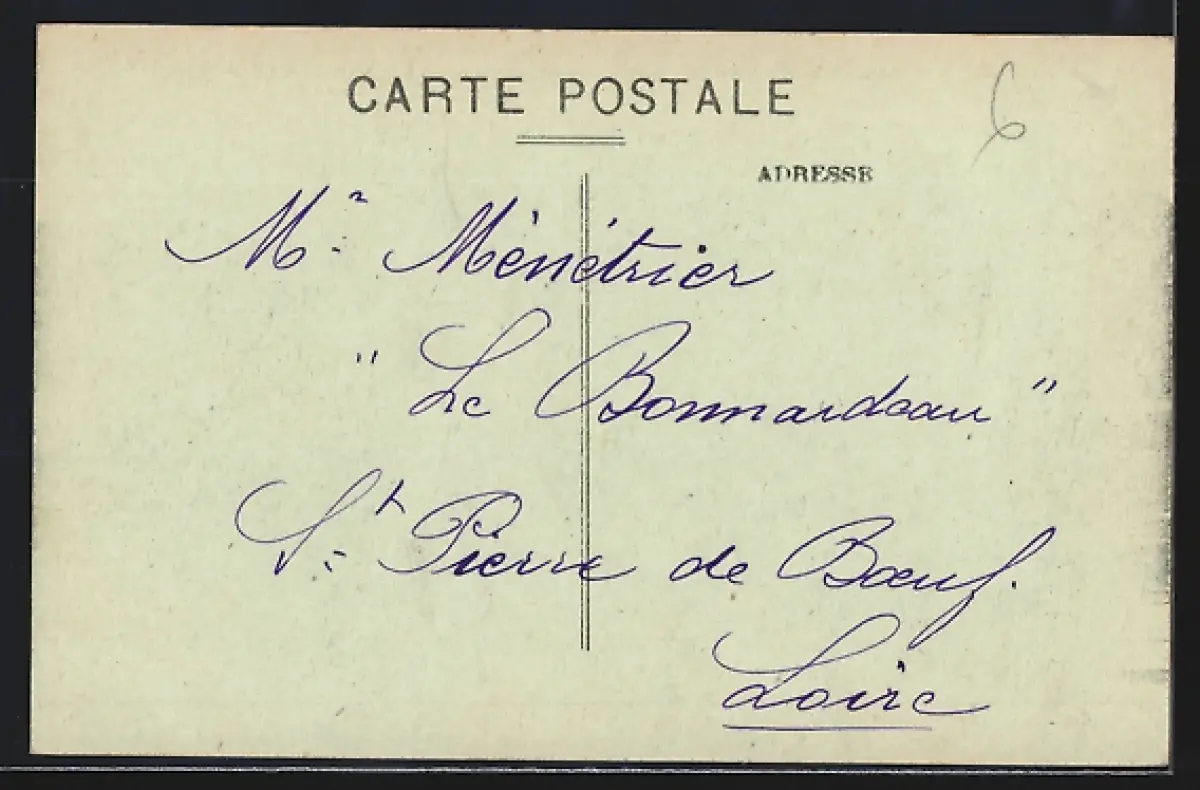 CARTE POSTALE
6
ADRESSE
Mr. Ménétrier
"Le Bonnardeau"
St. Pierre de Bœuf.
Loire